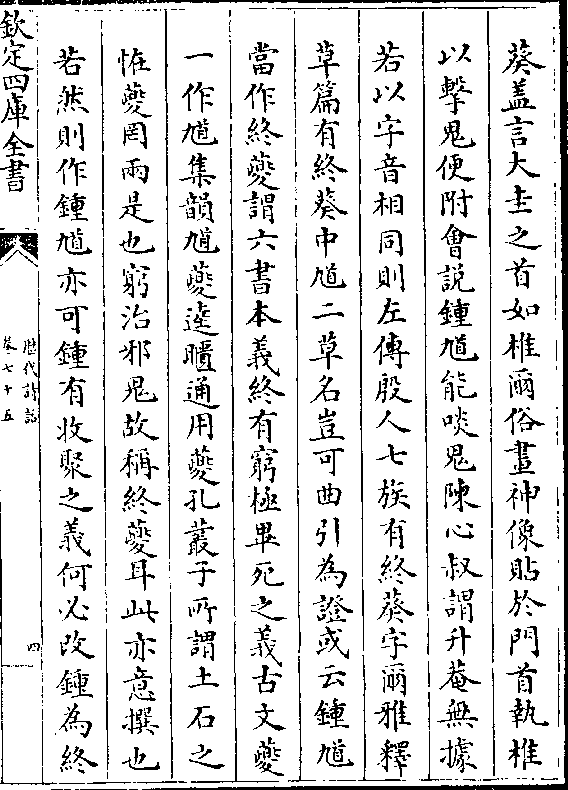 葵盖言大圭之首如椎爾俗畫神像貼於門首執椎
以擊鬼便附會説鍾馗能啖鬼陳心叔謂升菴無據
若以字音相同則左傳殷人七族有終葵字爾雅釋
草篇有終葵中馗二草名豈可曲引為證或云鍾馗
當作終夔謂六書本義終有窮極畢死之義古文夔
一作馗集韻馗夔逵䮫通用夔孔叢子所謂土石之
恠夔罔兩是也窮治邪鬼故稱終夔耳此亦意撰也
若然則作鍾馗亦可鍾有收聚之義何必改鍾為終
欽定四庫全書
歴代詩話
卷七十五
四